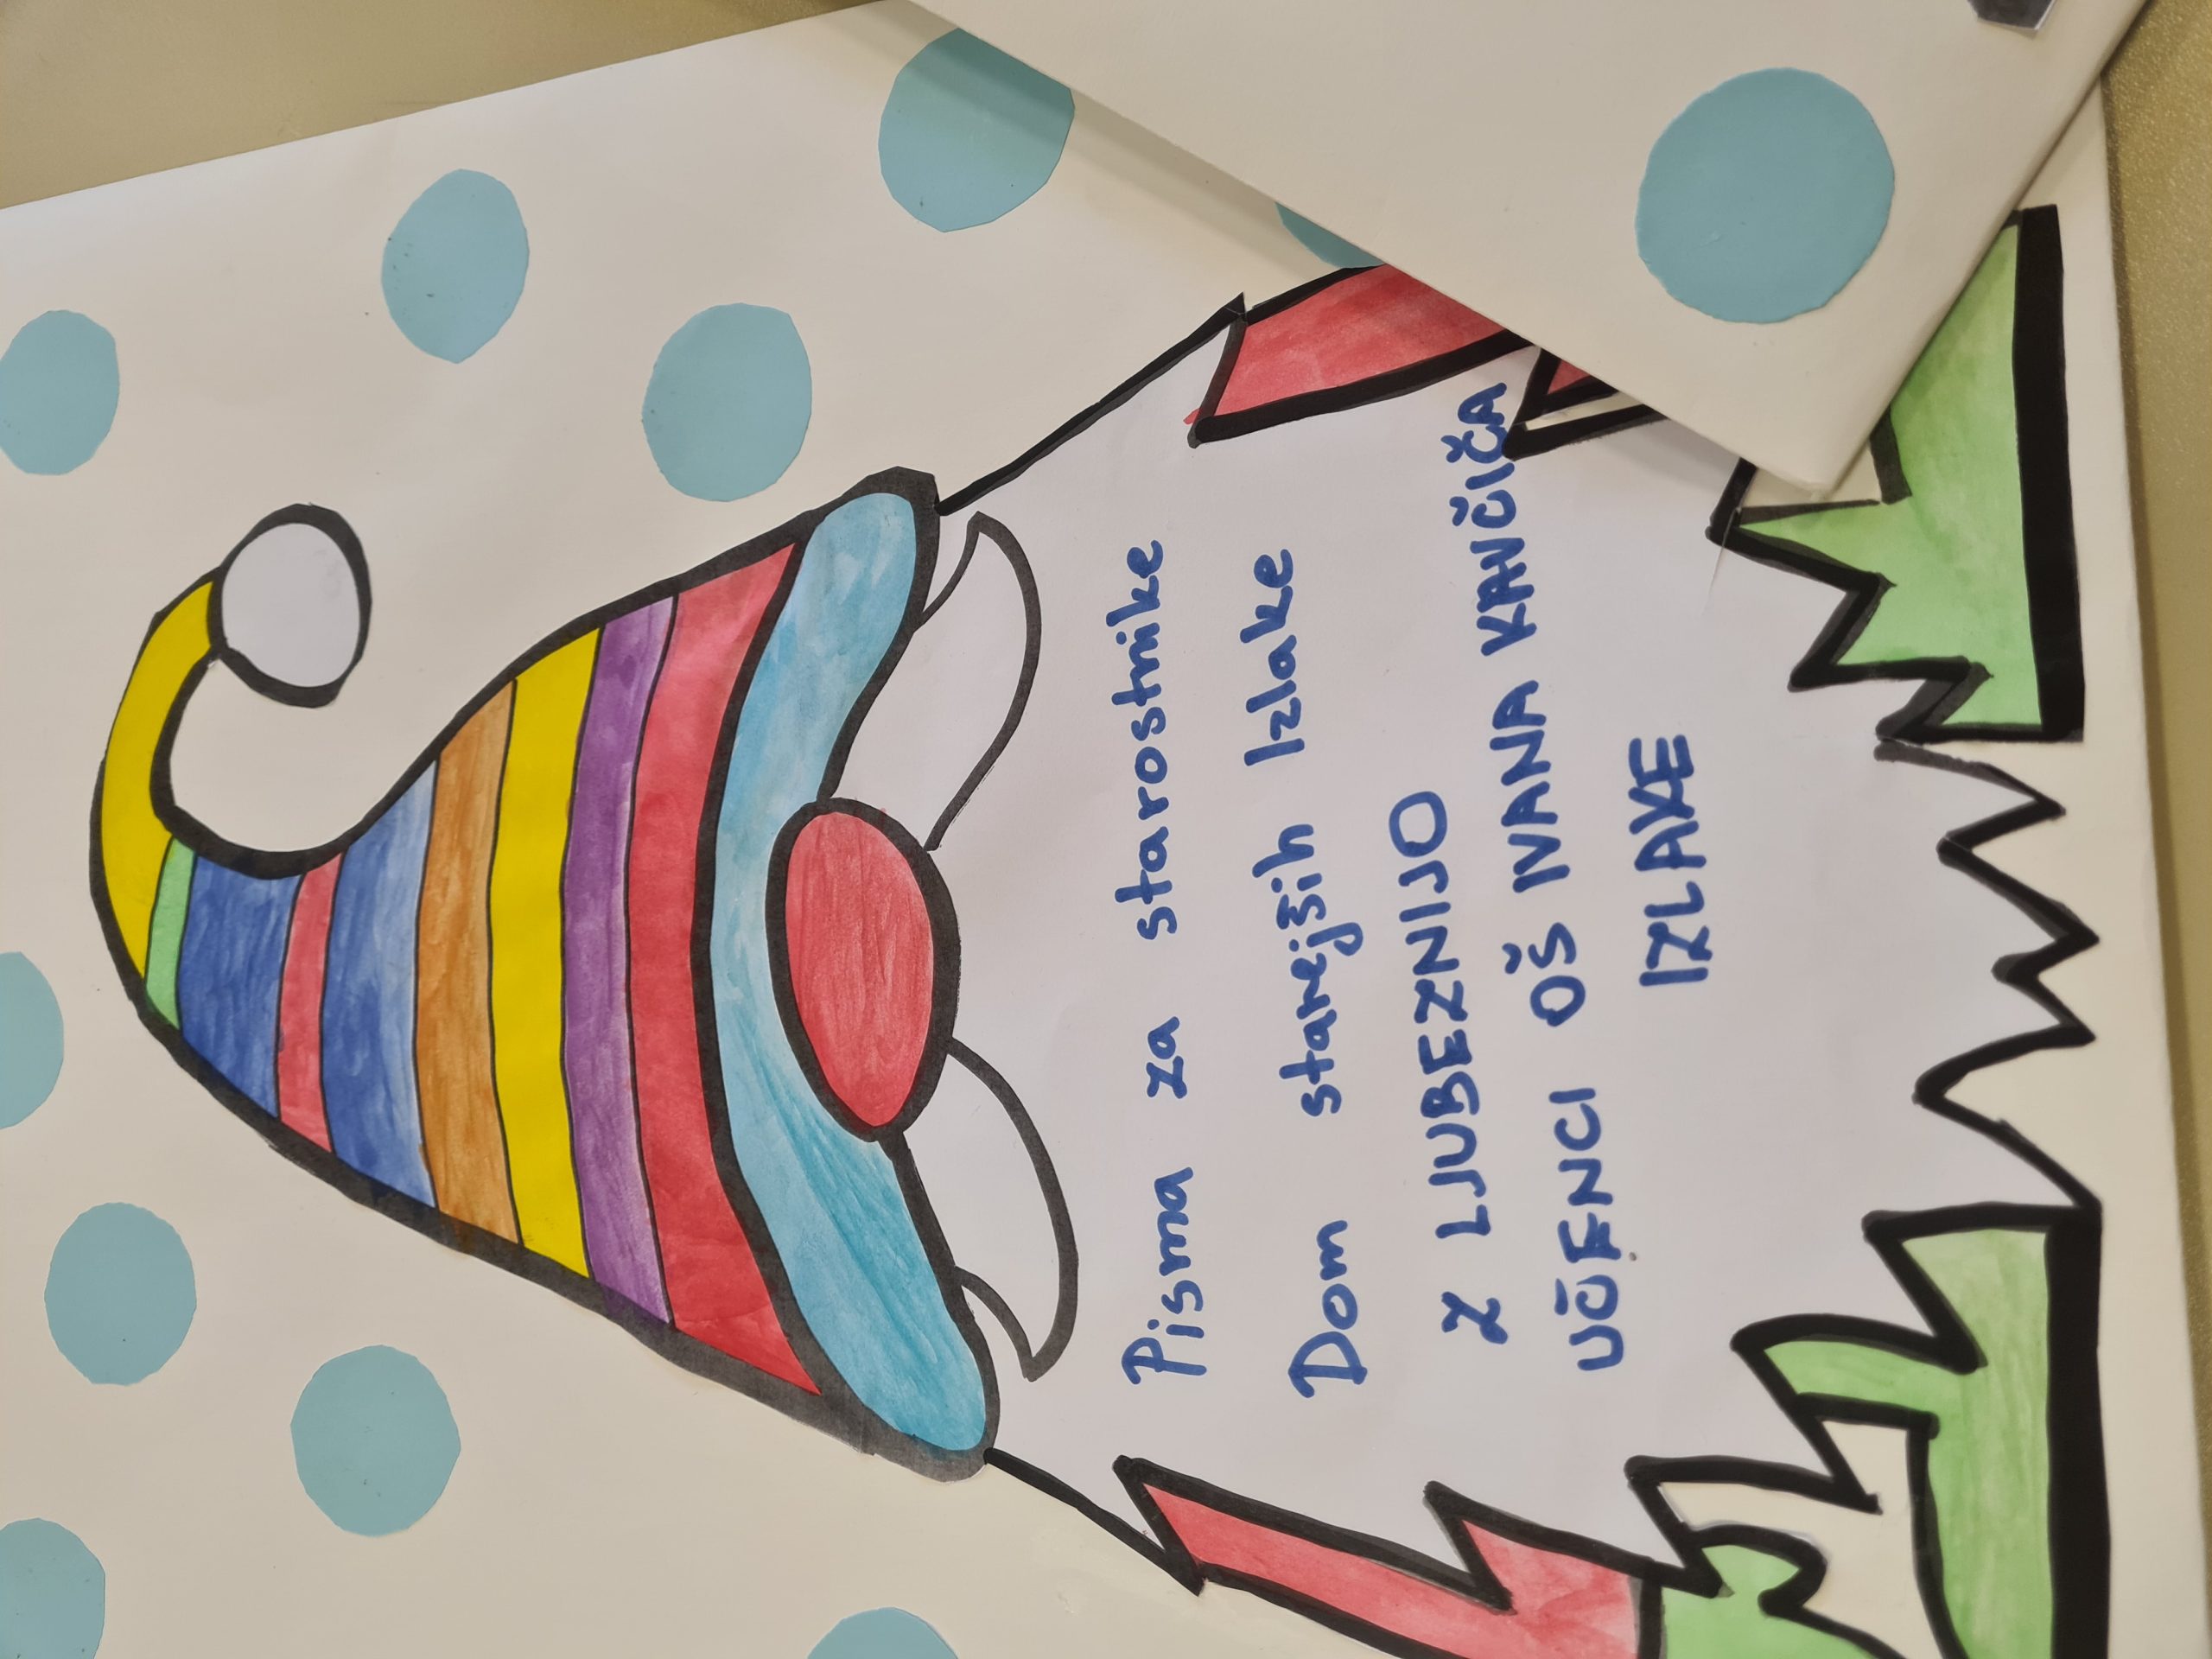 Pisma za starostnike
Dom starejših Izlake
Z LJUBEZNIJO
UČENCI OŠ IVANA KAVČIČA
IZLAKE